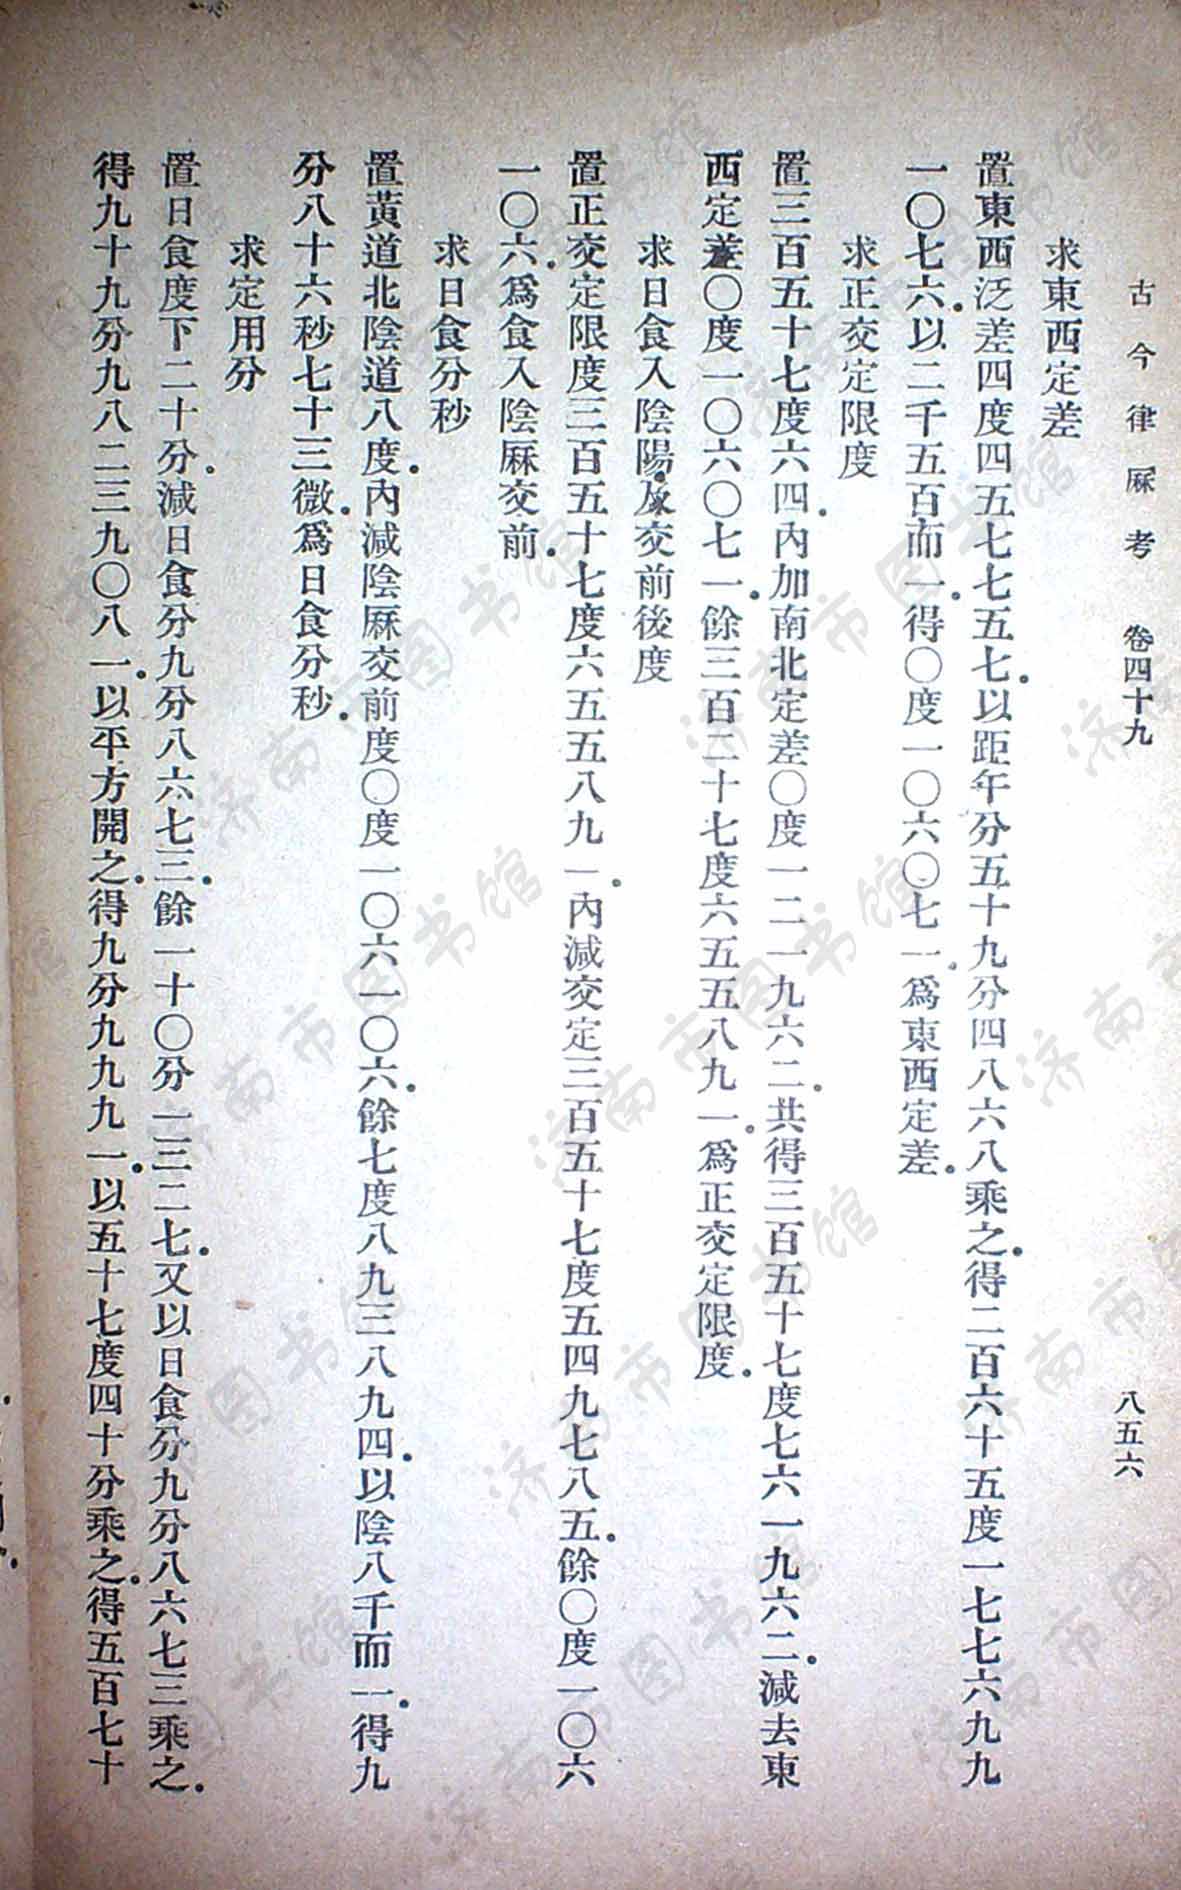 古今律厤考　卷四十九　八五六
求東西定差
置東西泛差四度四五七七五七。以距年分五十九分四八六八乘之。得二百六十五度一七七六九九
一〇七六。以二千五百而一。得〇度一〇六〇七一。爲東西定差。
求正交定限度
置三百五十七度六四。內加南北定差〇度一二一九六二。共得三百五十七度七六一九六二。減去東
西定差〇度一〇六〇七一。餘三百五十七度六五五八九一。爲正交定限度。
求日食入陰陽厤交前後度
置正交定限度三百五十七度六五五八九一。內減交定三百五十七度五四九七八五。餘〇度一〇六
一〇六。爲食入陰厤交前。
求日食分秒
置黃道北陰道八度。內減陰厤交前度〇度一〇六一〇六。餘七度八九三八九四。以陰八千而一。得九
分八十六秒七十三微。爲日食分秒。
求定用分
置日食度下二十分。減日食分九分八六七三。餘一十〇分一三二七。又以日食分九分八六七三乘之。
得九十九分九八二三九〇八一。以平方開之。得九分九九九一。以五十七度四十分乘之。得五百七十